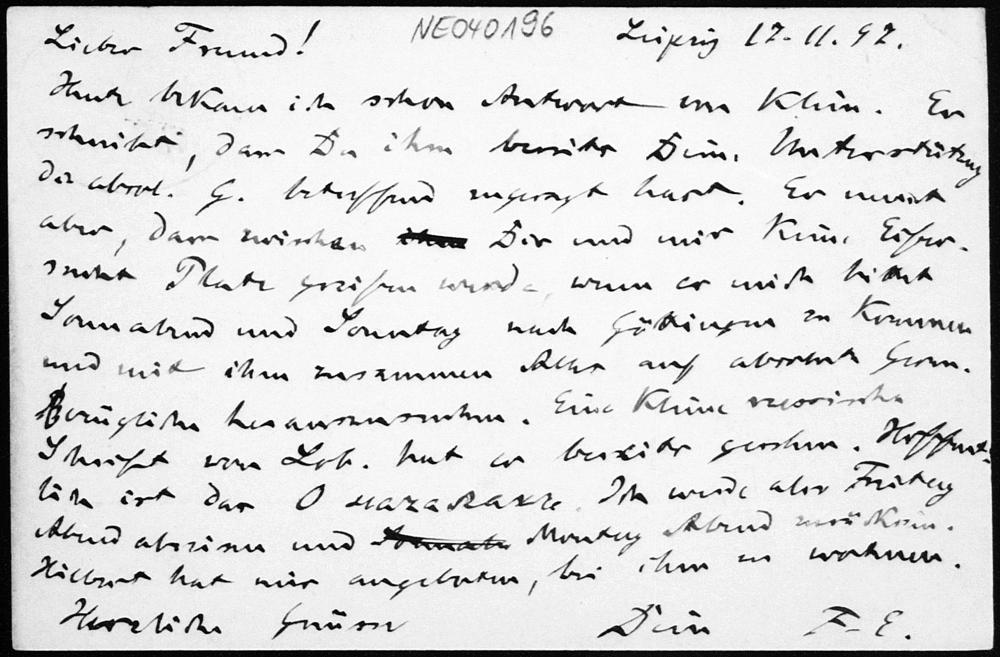 NE040196
Lieber Freund! Leipzig 17-11.97.
Heute bekam ich schon Antwort von Klein. Er
schreibt, dass Du ihm bereits Deine Unterstützung
die absol. G. betreffend zugesagt hast. Er meint
aber, dass zwischen Dir und mir keine Eifer-
sucht Platz greifen werde, wenn er mich bittet
Sonnabend und Sonntag nach Göttingen zu kommen
und mit ihm zusammen Alles auf absolute Geom.
Bezügliche herauszusuchen. Eine kleine russische
Schrift von Lob. hat er bereits gesehen. Hoffent-
lich ist das O началахъ. Ich werde also Freitag
Abend abreisen und Montag Abend zurücksein.
Hilbert hat mir angeboten, bei ihm zu wohnen.
Herzliche Grüsse Dein F-E.